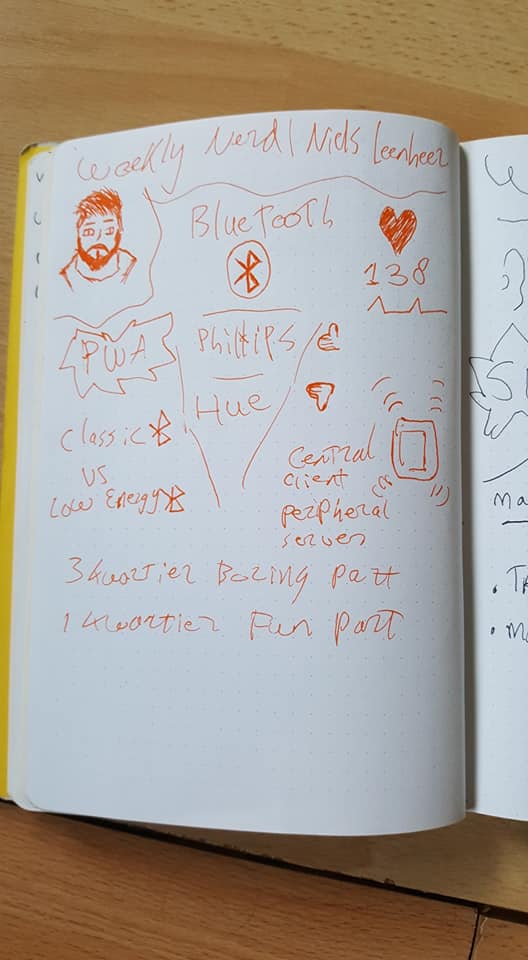 Weekly Nerd | Niels Leenheer
Bluetooth
138
PWA
Phillips
Hue
Classic
vs
Low Energy
Central
client
peripheral
server
3 kwartier Boring part
1 kwartier Fun part